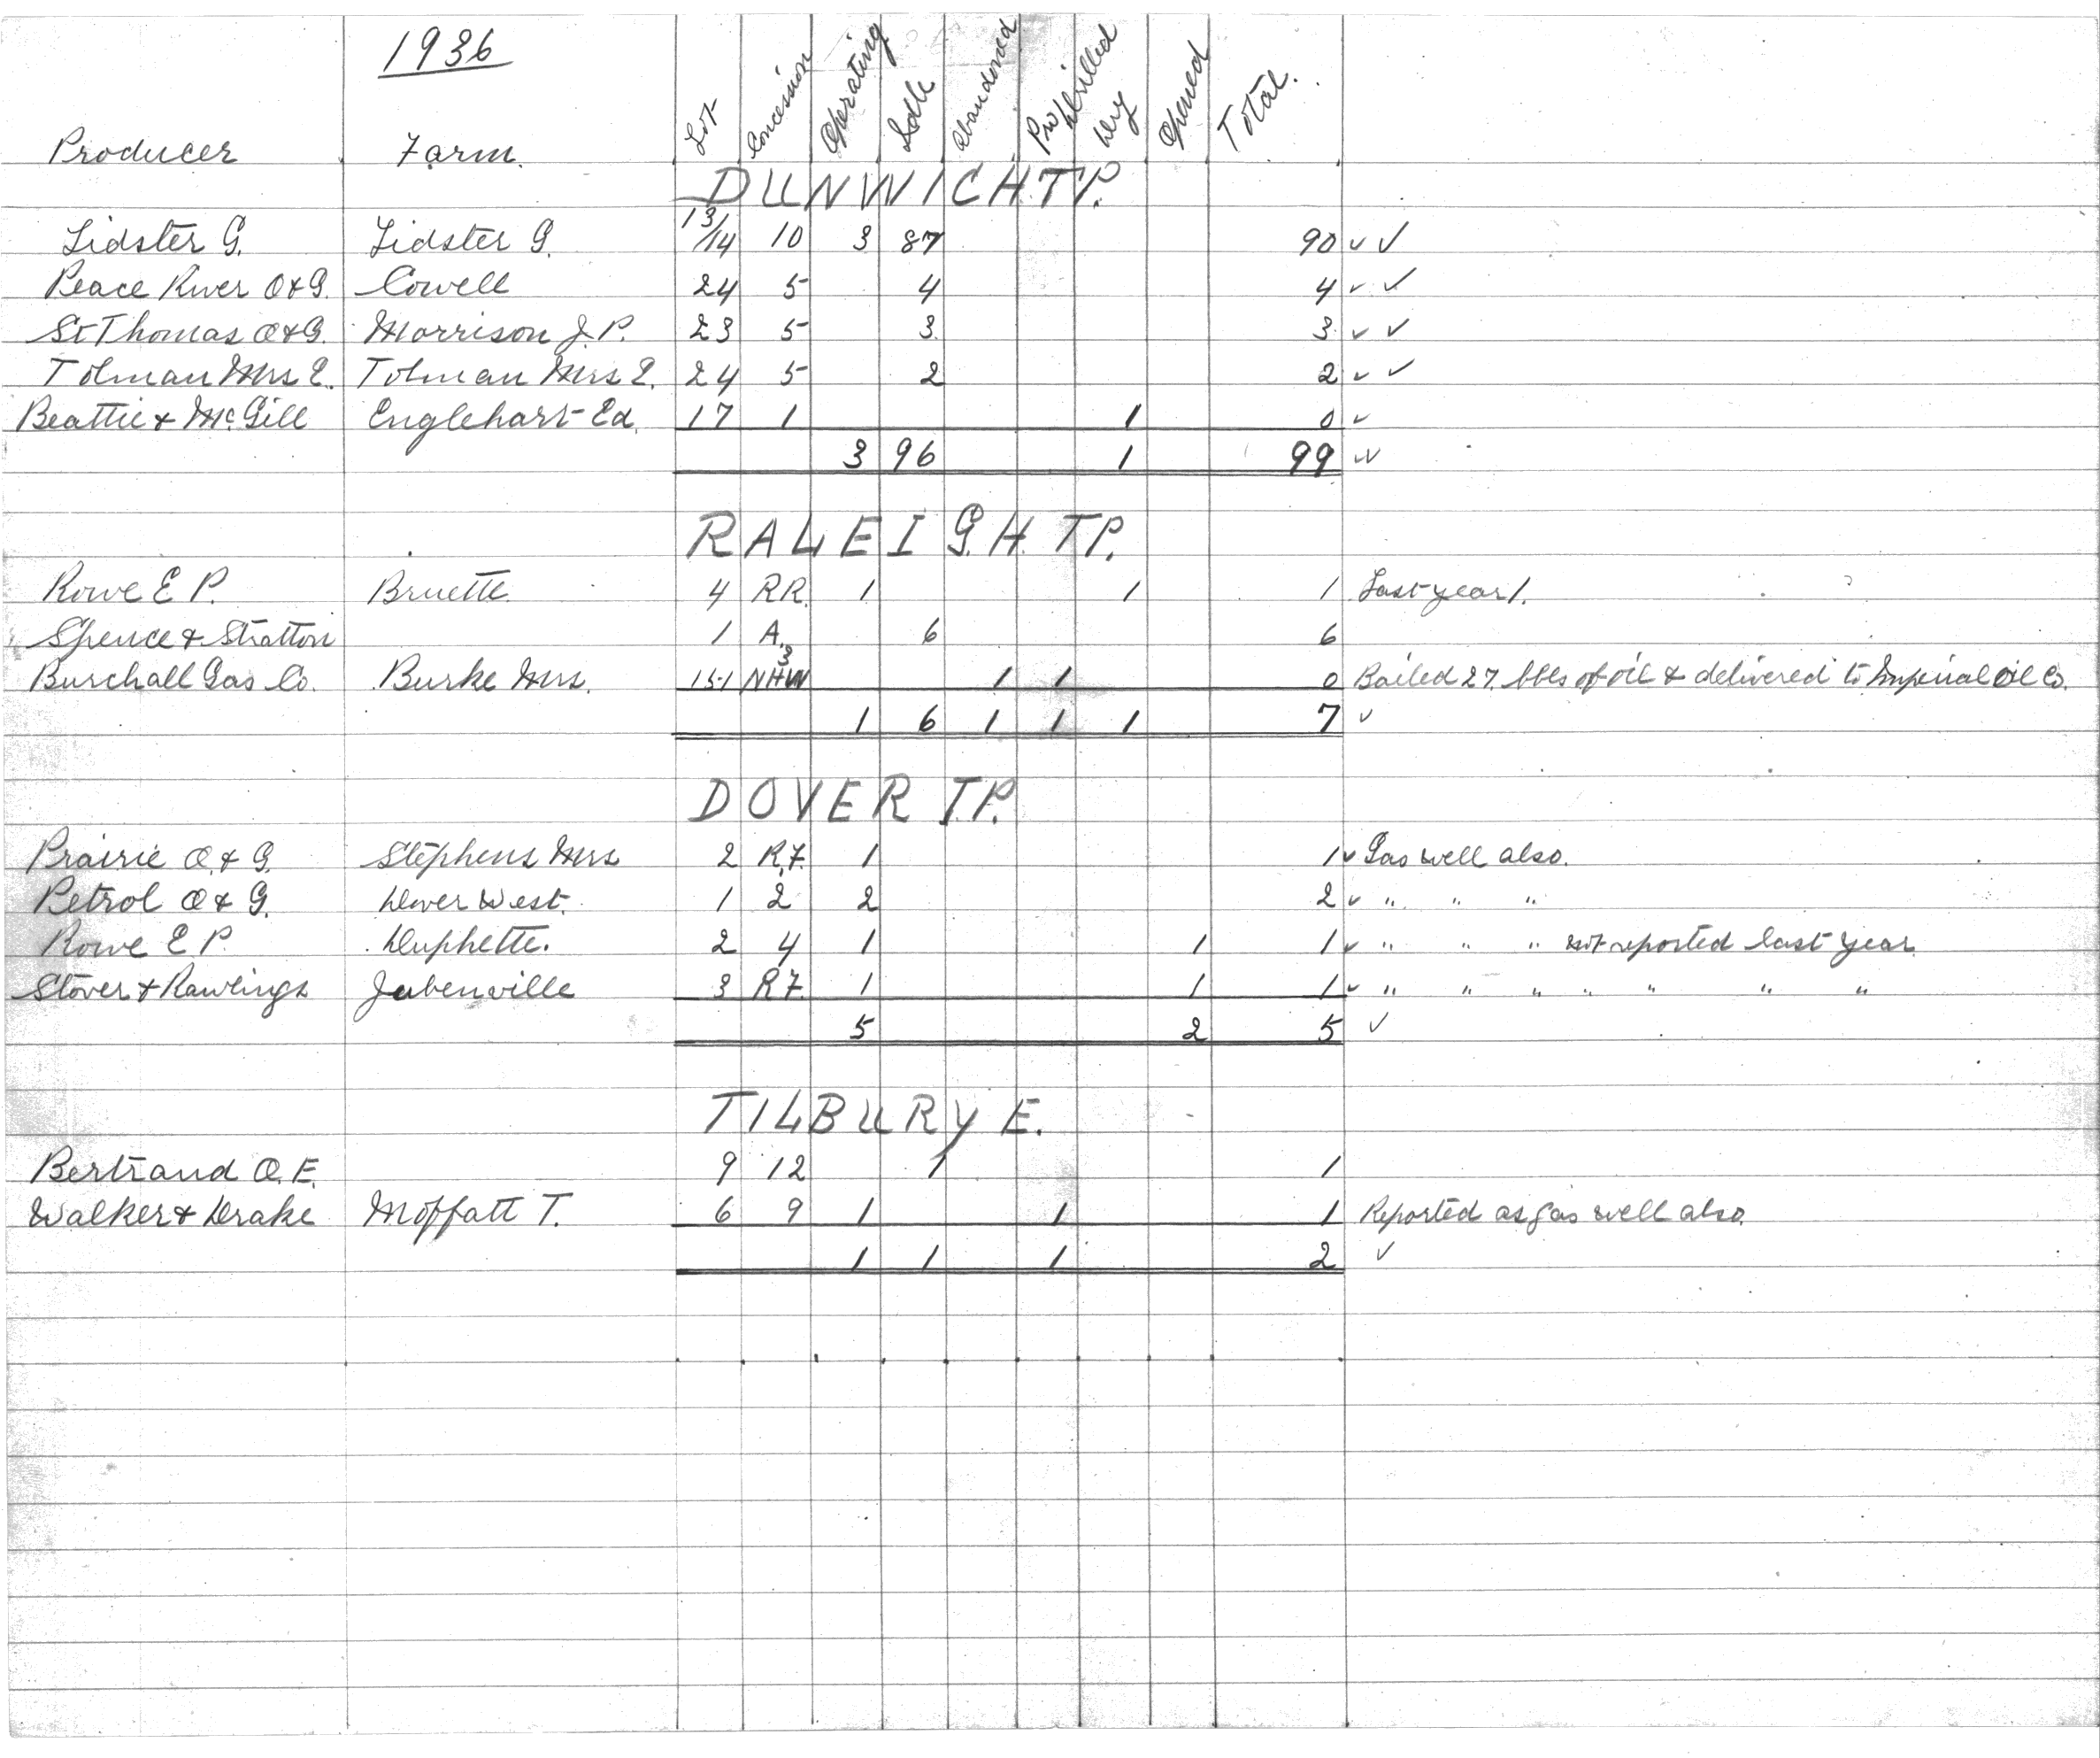 1936
Producer Farm. Lot Concession Operating Idle Abandoned Pro Drilled Dry Opened Total.
DUNWICH TP.
Lidster G. Lidster G. 13/14 10 3 87 90 ✓ ✓
Peace River O & G. Cowell 24 5 4 4 ✓ ✓
St Thomas O & G. Morrison J. P. 23 5 3 3 ✓ ✓
Tolman Mrs E. Tolman Mrs E. 24 5 2 2 ✓ ✓
Beattie & McGill Englehart Ed. 17 1 1 0 ✓
3 96 1 99 ✓✓
RALEIGH TP.
Rowe E P. Bruette 4 RR. 1 1 1 Last year 1.
Spence & Stratton 1 A. 6 6
Burchall Gas Co. Burke Mrs. 151 3 NHW 1 1 0 Bailed 27 bbls of oil & delivered to Imperial Oil Co.
1 6 1 1 1 7 ✓
DOVER T.P.
Prairie O. & G. Stephens Mrs 2 R.7. 1 1 ✓ Gas well also.
Petrol O & G. Dover West. 1 2 2 2 ✓ " " "
Rowe E P. Duphette. 2 4 1 1 1 ✓ " " " Not reported last year
Stover & Rawlings Jubenville 3 R7. 1 1 1 ✓ " " " " " " "
5 2 5 ✓
TILBURY E.
Bertrand O. E. 9 12 1 1
Walker & Drake Moffatt T. 6 9 1 1 1 Reported as gas well also.
1 1 1 2 ✓